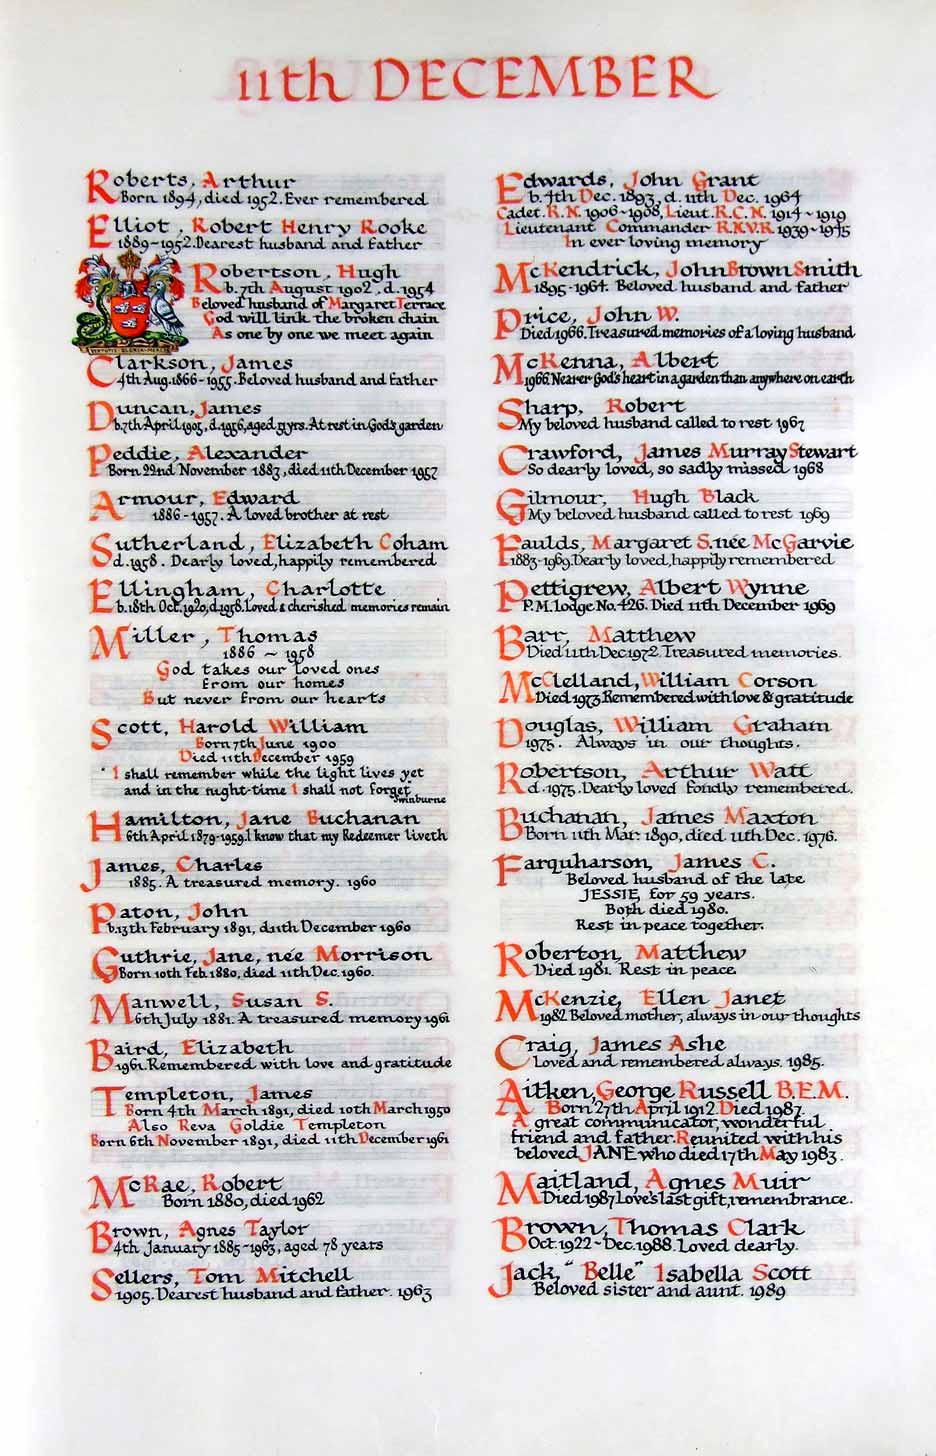 11th DECEMBER
Roberts, Arthur
Born 1894, died 1952. Ever remembered
Elliot, Robert Henry Rooke
1889-1952. Dearest husband and father
Robertson, Hugh
b. 7th August 1902, d. 1954
Beloved husband of Margaret Terrace
God will link the broken chain
As one by one we meet again
Clarkson, James
4th Aug. 1866-1955. Beloved husband and father
Duncan, James
b. 7th April 1905, d. 1956, aged 51yrs. At rest in God's garden
Peddie, Alexander
Born 22nd November 1883, died 11th December 1957
Armour, Edward
1886-1957. A loved brother at rest
Sutherland, Elizabeth Coham
d. 1958. Dearly loved, happily remembered
Ellingham, Charlotte
b. 18th Oct. 1920, d. 1958. Loved & cherished memories remain
Miller, Thomas
1886 ~ 1958
God takes our loved ones
from our homes
But never from our hearts
Scott, Harold William
Born 7th June 1900
Died 11th December 1959
"I shall remember while the light lives yet
and in the night-time I shall not forget"
Swinburne
Hamilton, Jane Buchanan
6th April 1879-1959. I know that my Redeemer liveth
James, Charles
1885. A treasured memory. 1960
Paton, John
b. 13th February 1891, d. 11th December 1960
Guthrie, Jane, née Morrison
Born 10th Feb. 1880, died 11th Dec. 1960.
Manwell, Susan S.
6th July 1881. A treasured memory 1961
Baird, Elizabeth
1961. Remembered with love and gratitude
Templeton, James
Born 4th March 1891, died 10th March 1950
Also Reva Goldie Templeton
Born 6th November 1891, died 11th December 1961
McRae, Robert
Born 1880, died 1962
Brown, Agnes Taylor
4th January 1885-1963, aged 78 years
Sellers, Tom Mitchell
1905. Dearest husband and father. 1963
Edwards, John Grant
b. 4th Dec. 1893, d. 11th Dec. 1964
Cadet. R.N. 1906-1908, Lieut. R.C.N. 1914-1919
Lieutenant Commander R.N.V.R. 1939-1945
In ever loving memory
McKendrick, John Brown Smith
1895-1964. Beloved husband and father
Price, John W.
Died 1966. Treasured memories of a loving husband
McKenna, Albert
1966. Nearer God's heart in a garden than anywhere on earth
Sharp, Robert
My beloved husband called to rest 1967
Crawford, James Murray Stewart
So dearly loved, so sadly missed 1968
Gilmour, Hugh Black
My beloved husband called to rest 1969
Faulds, Margaret S. née McGarvie
1883-1969. Dearly loved, happily remembered
Pettigrew, Albert Wynne
P.M. Lodge No. 426. Died 11th December 1969
Barr, Matthew
Died 11th Dec 1972. Treasured memories.
McClelland, William Corson
Died 1973 Remembered with love & gratitude
Douglas, William Graham
1975. Always in our thoughts.
Robertson, Arthur Watt
d. 1975. Dearly loved fondly remembered.
Buchanan, James Maxton
Born 11th Mar. 1890, died 11th Dec. 1976.
Farquharson, James C.
Beloved husband of the late
JESSIE, for 59 years.
Both died 1980.
Rest in peace together.
Roberton, Matthew
Died 1981. Rest in peace
McKenzie, Ellen Janet
1982 Beloved mother, always in our thoughts
Craig, James Ashe
Loved and remembered always. 1985.
Aitken, George Russell B.E.M.
Born 27th April 1912. Died 1987.
A great communicator, wonderful
friend and father. Reunited with his
beloved JANE who died 17th May 1983.
Maitland, Agnes Muir
Died 1987 Love's last gift, remembrance.
Brown, Thomas Clark
Oct. 1922-Dec. 1988. Loved dearly.
Jack, "Belle" Isabella Scott
Beloved sister and aunt. 1989